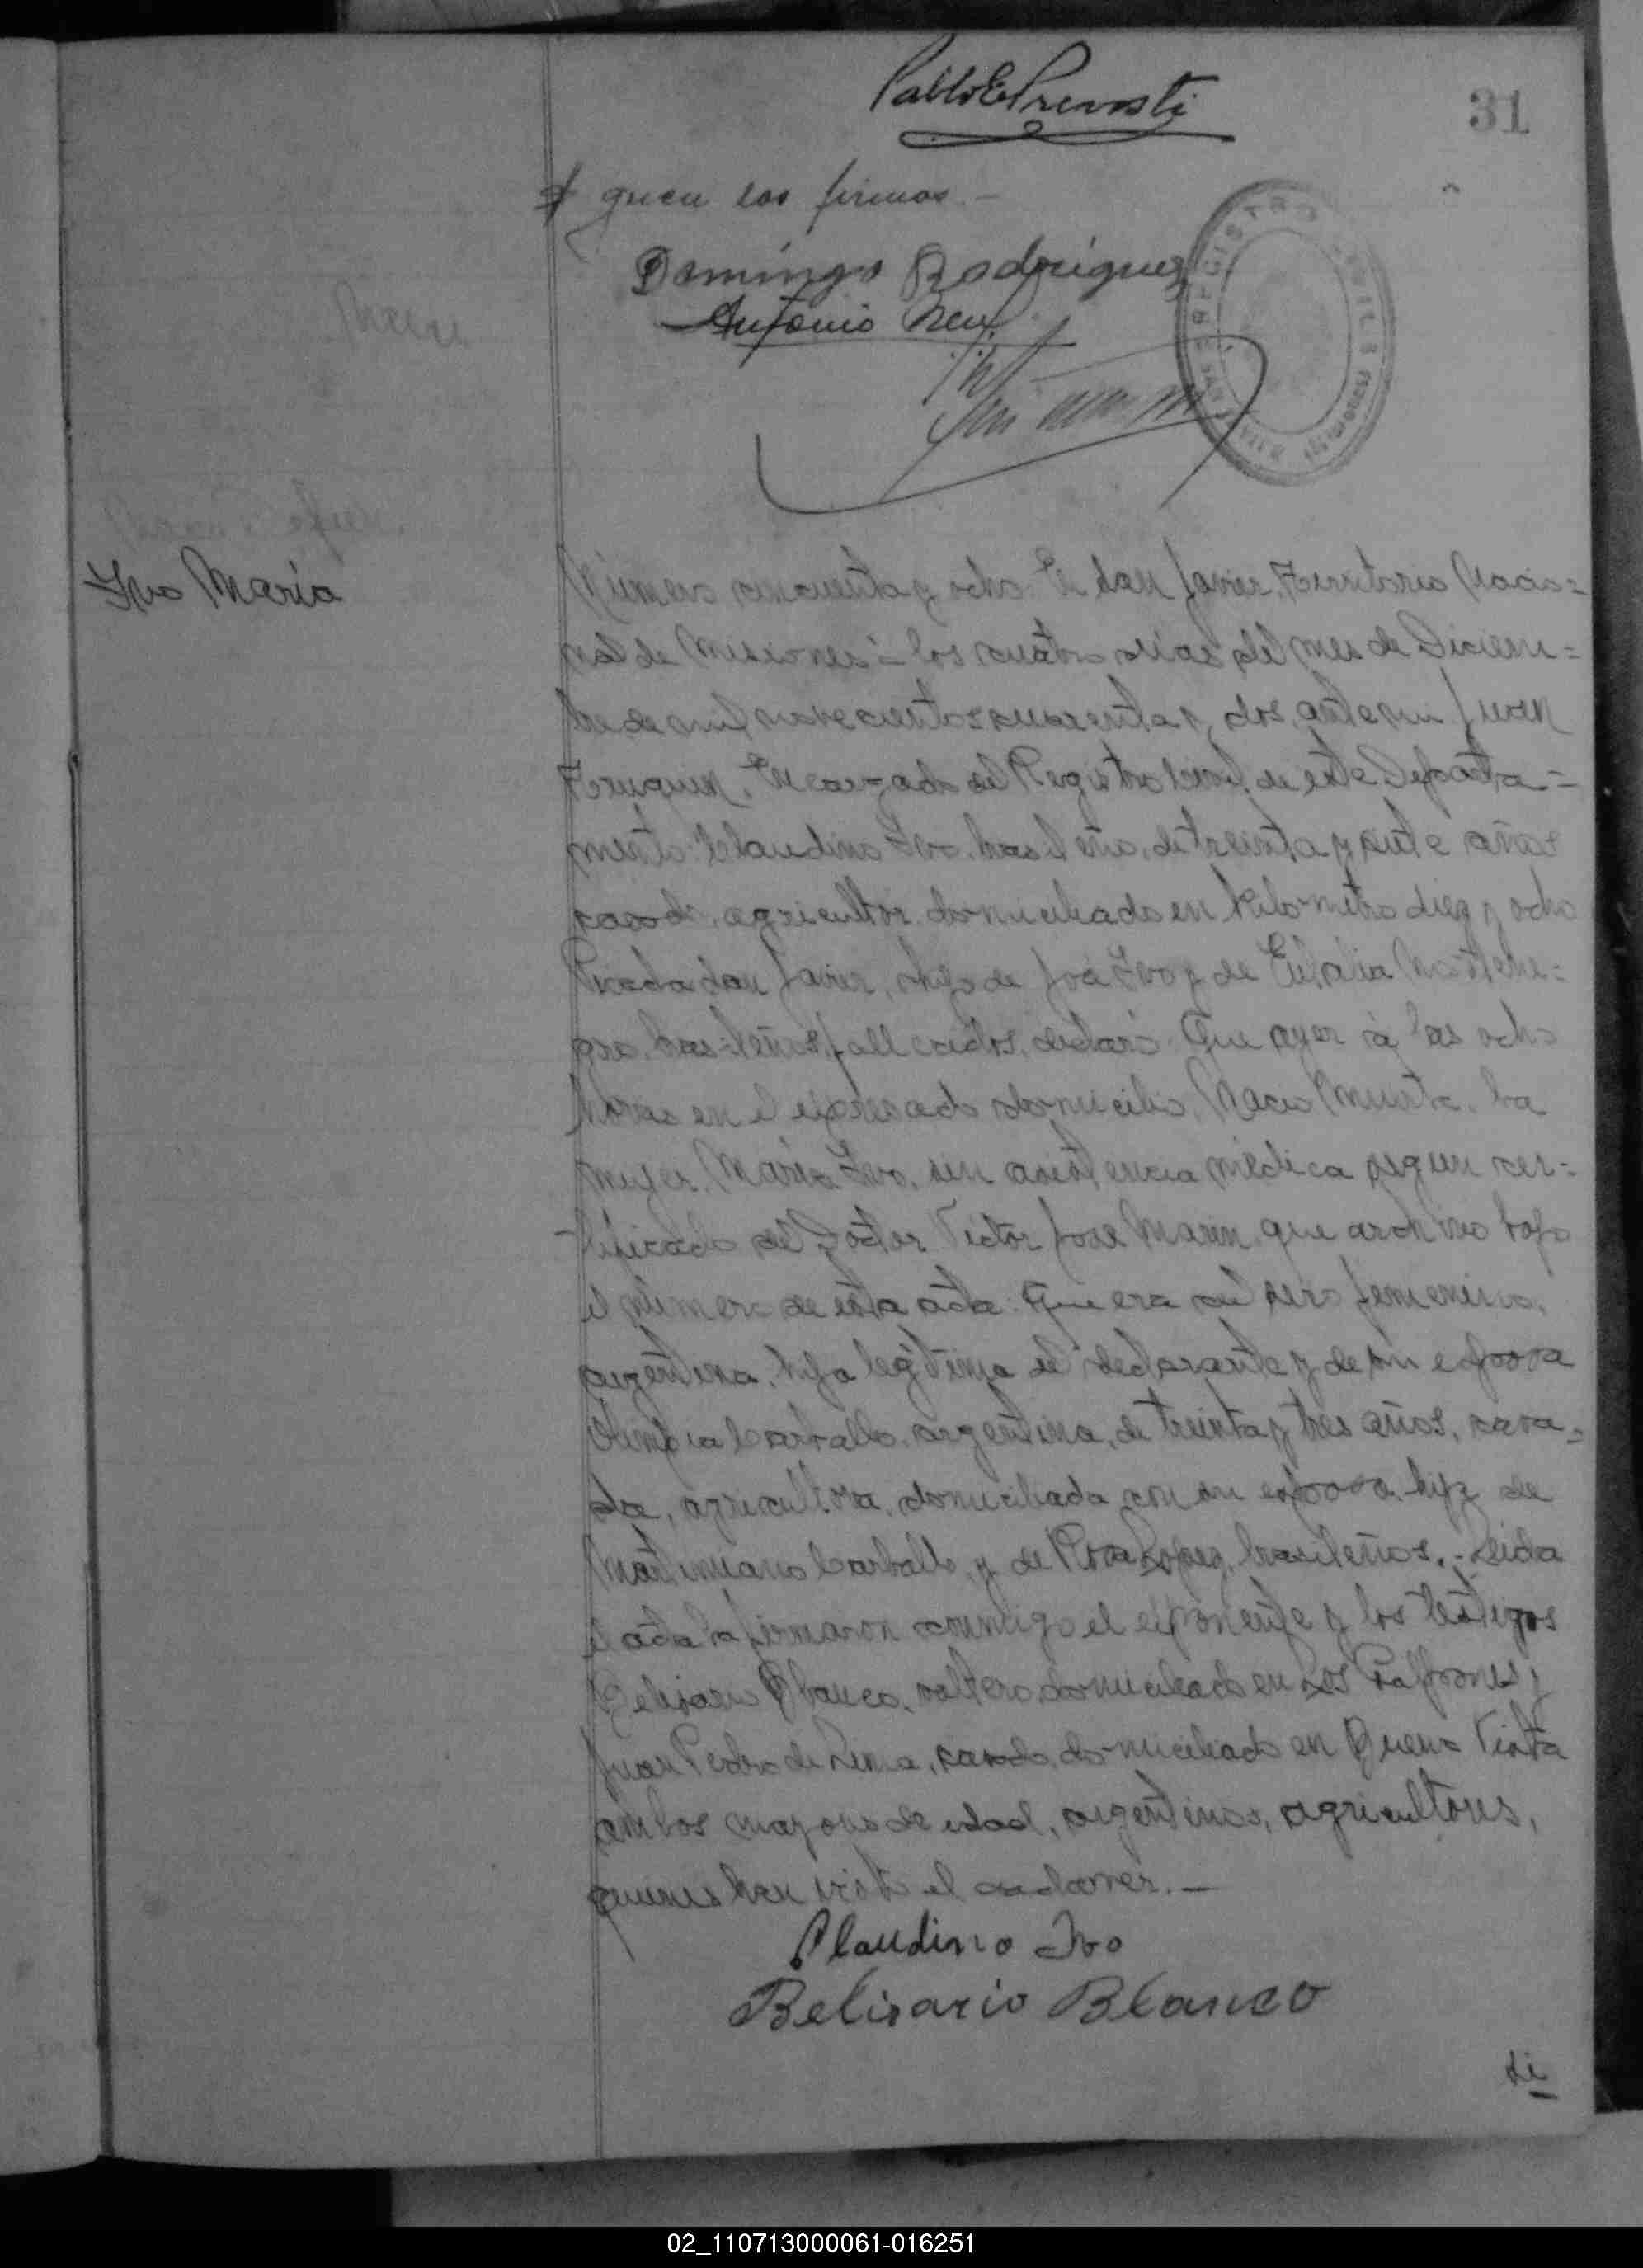 Pablo E Prevosti
31
guen las firmas.-
Domingo Rodriguez
Antonio
REGISTRO CIVIL
Ivo María
Número cincuenta y ocho: En San Javier, Territorio Nacio=
nal de Misiones á los cuatro días del mes de Diciem=
bre de mil novecientos cuarenta y dos, ante mi Juan
Encargado del Registro Civil de este Departa=
mento: Claudino Ivo, brasileño, de treinta y siete años
casado, agricultor domiciliado en Kilometro diez y ocho
Picada San Javier, hijo de José Ivo y de Eulalia
brasileños, fallecidos, declaró: Que ayer á las ocho
horas en el expresado domicilio, Nació Muerta, la
mujer, María Ivo, sin asistencia médica segun cer=
tificado del Doctor Victor José Marin que archivo bajo
el número de esta acta: Que era del sexo femenino,
argentina, hija legítima del declarante y de su esposa
Olimpia Carballo, argentina, de treinta y tres años, casa=
da, agricultora, domiciliada con su esposo, hija de
Martimiano Carballo, y de Rosa Lopez, brasileños.- Leida
el acta la firmaron conmigo el exponente y los testigos
Belisario Blanco, soltero, domiciliado en Los Galpones y
Juan Pedro de Lima, casado, domiciliado en Buena Vista
ambos mayores de edad, argentinos, agricultores,
quienes han visto el cadaver.-
Claudino Ivo
Belisario Blanco
si
02_110713000061-016251